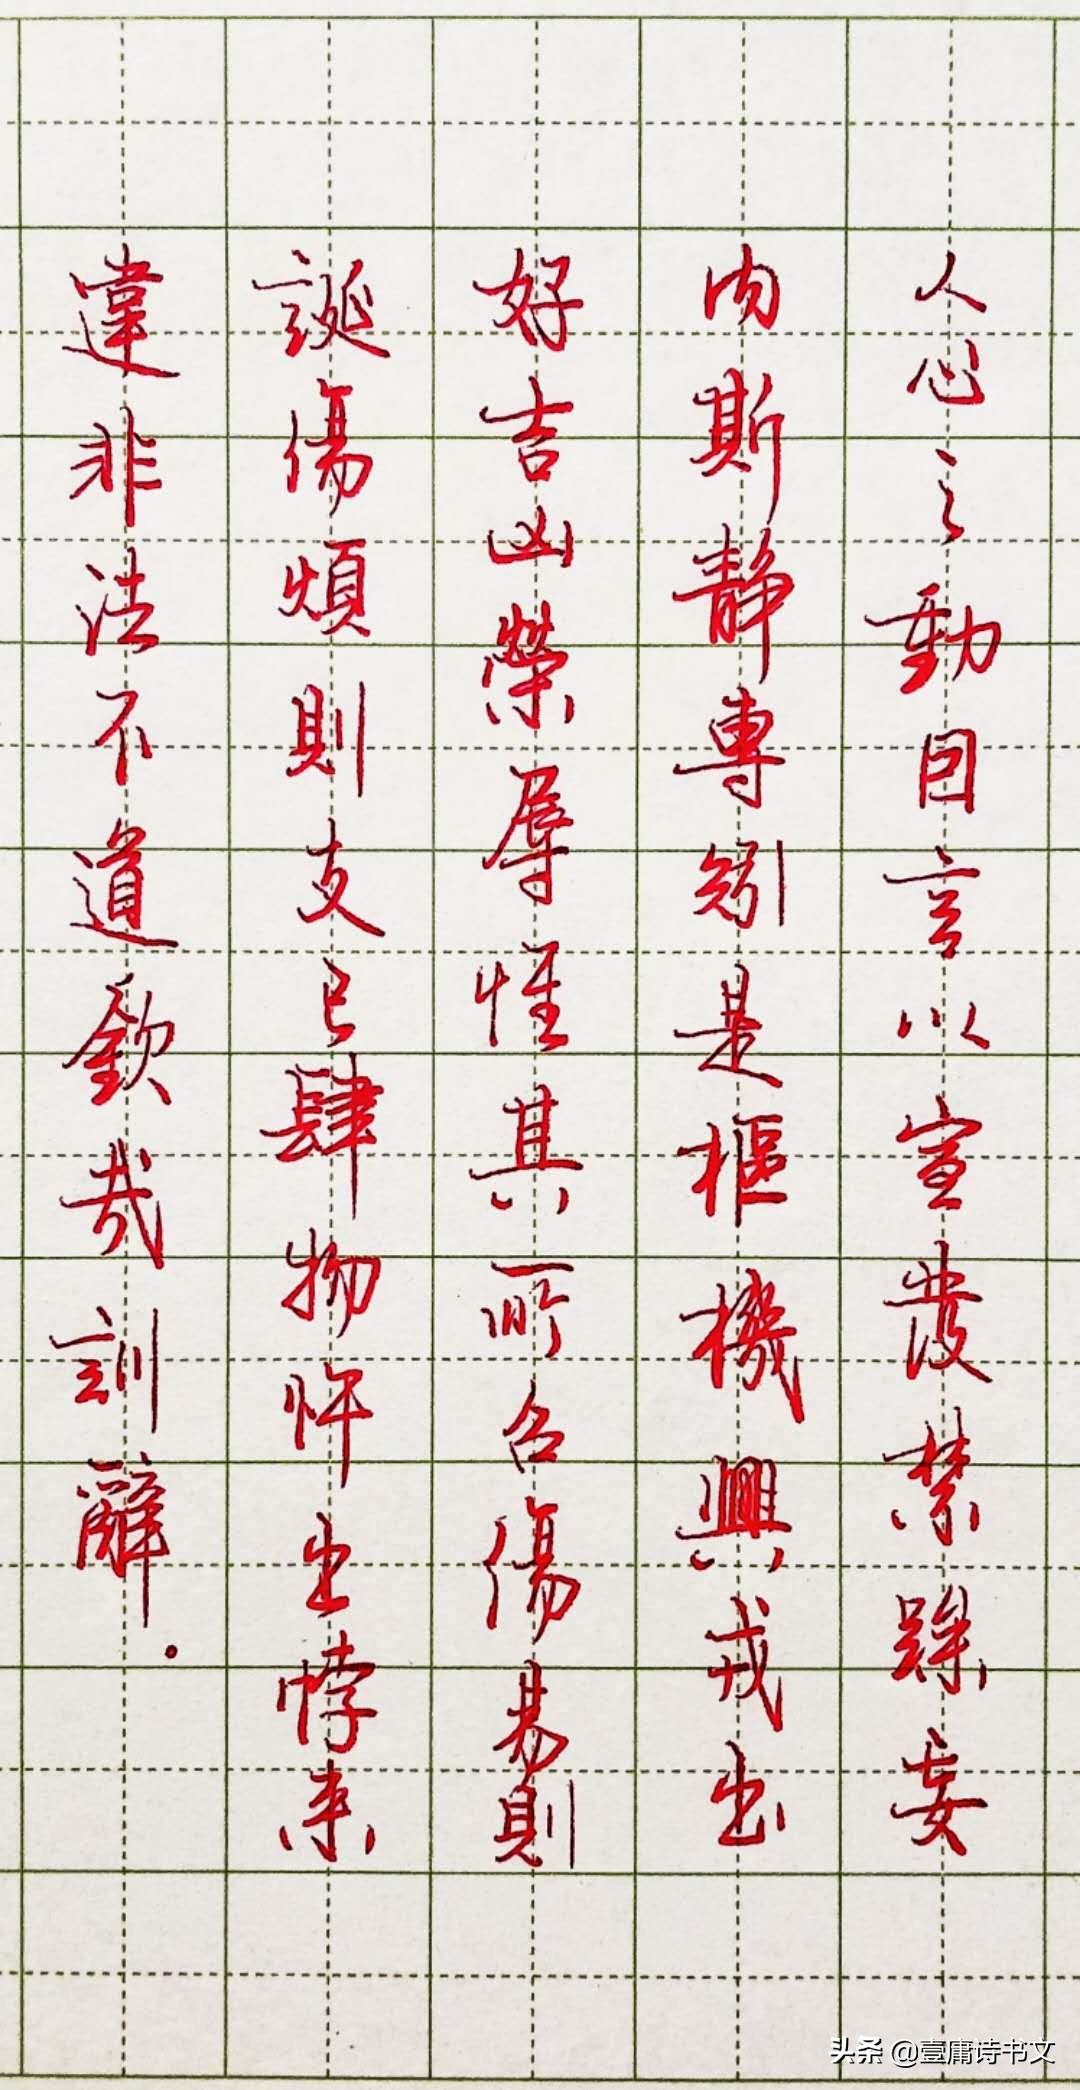 人心之動因言以宣發禁躁妄
内斯靜專矧是樞機興戎出
好吉凶榮辱惟其所召傷易則
誕傷煩則支己肆物忤出悖来
違非法不道欽哉訓辭.
头条 @壹庸诗书文